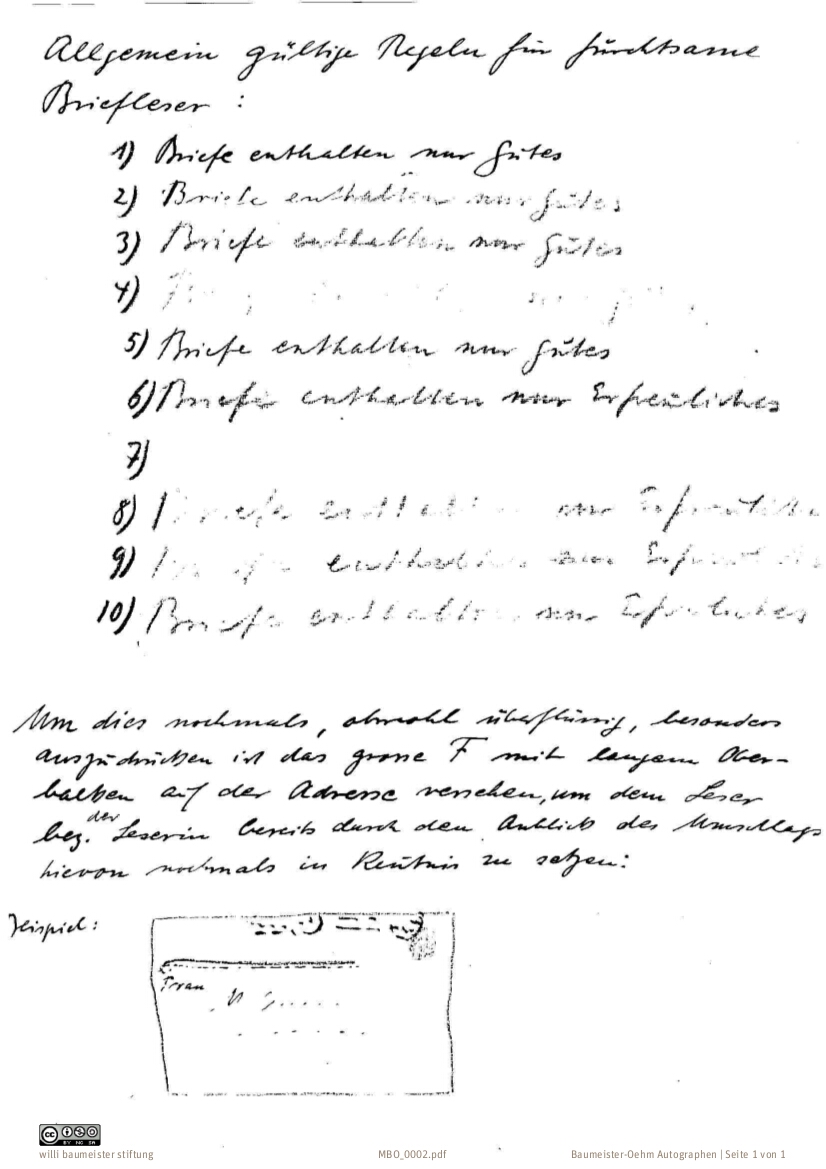 Allgemein gültige Regeln für fürchtsame
Briefleser :
1) Briefe enthalten nur Gutes
2) Briefe enthalten nur Gutes
3) Briefe enthalten nur Gutes
4)
5) Briefe enthalten nur Gutes
6) Briefe enthalten nur Erfreuliches
7)
8) Briefe enthalten nur Erfreuliche
9) Briefe enthalten nur Erfreuliches
10) Briefe enthalten nur Erfreuliches
Um dies nochmals, obwohl überflüssig, besonders
auszudrücken ist das grosse F mit langem Ober-
balken auf der Adresse versehen, um dem Leser
bez. der Leserin bereits durch den Anblick des Umschlags
hievon nochmals in Kentnis zu setzen:
Beispiel:
Frau
willi baumeister stiftung
MBO_0002.pdf
Baumeister-Oehm Autographen | Seite 1 von 1
CC BY NC SA